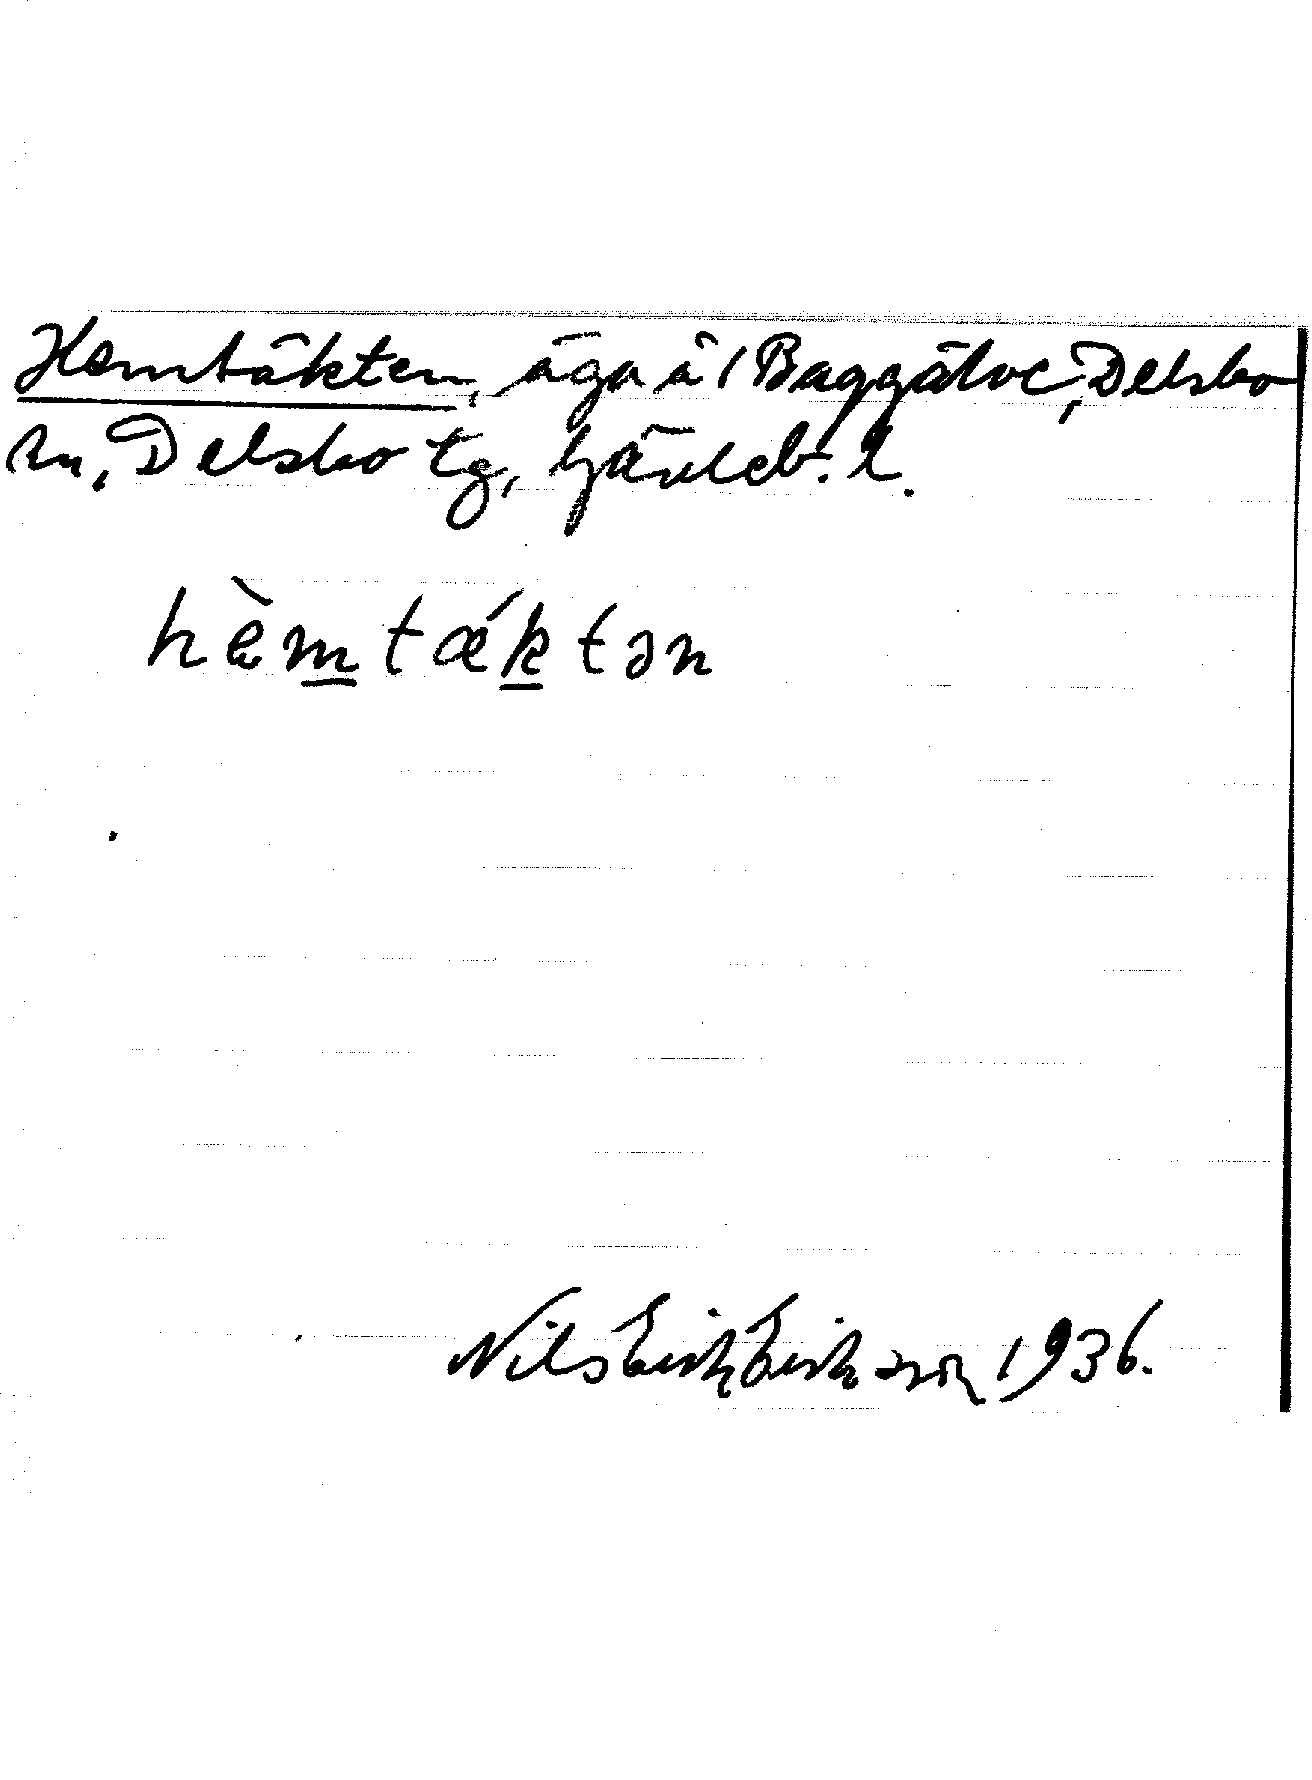 Hemtäkten, äga å 1 Baggälve, Delsbo
sn, Delsbo tg, Gävleb. l.
hèm̲tǽk̲tən
Nils Erik Eriksson 1936.